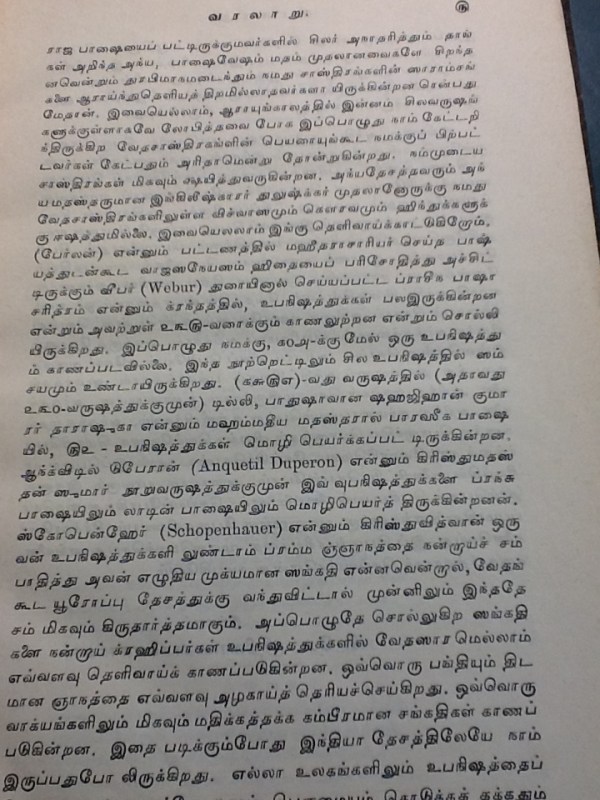 வரலாறு. ௫
ராஜ பாஷையைப் பட்டிருக்குமவர்களில் சிலர் அநாதரித்தும் தாங்
கள் அறிந்த அந்ய, பாஷைவேஷம் மதம் முதலானவைகளே சிறந்த
னவென்றும் துரபிமாநமடைந்தும் நமது சாஸ்திரங்களின் ஸாராம்சங்
களை ஆராய்ந்துதெளியத் திறமில்லாதவர்களா யிருக்கின்றன ரென்பது
மேதான். இவையெல்லாம், ஆராயுங்காலத்தில் இன்னம் சிலவருஷங்
களுக்குள்ளாகவே லோபித்தவை போக இப்பொழுது நாம் கேட்டறி
ந்திருக்கிற வேதசாஸ்திரங்களின் பெயரையுங்கூட நமக்குப் பிற்பட்
டவர்கள் கேட்பதும் அரிதாமென்று தோன்றுகின்றது. நம்முடைய
சாஸ்திரங்கள் மிகவும் க்ஷயித்துவருகின்றன. அந்யதேசத்தவரும் அந்
யமதஸ்தருமான இங்கிலீஷ்காரர் துலுஷ்க்கர் முதலானோருக்கு நமது
வேதசாஸ்திரங்களிலுள்ள விச்வாஸமும் கௌரவமும் ஹிந்துக்களுக்
கு ஈஷத்துமில்லை. இவையெலலாம் இங்கு தெளிவாய்க்காட்டுகிறோம்.
(பேர்லன்) என்னும் பட்டணத்தில் மஹீதராசாரியர் செய்த பாஷ்
யத்துடன்கூட வாஜஸநேயஸம் ஹிதையைப் பரிசோதித்து அச்சிட்
டிருக்கும் வீபர் (Webur) துரையினால் செய்யப்பட்ட ப்ராசீக பாஷா
சரித்ரம் என்னும் க்ரந்தத்தில், உபநிஷத்துக்கள் பலஇருக்கின்றன
என்றும் அவற்றுள் ௨௩௫-வரைக்கும் காணலுற்றன என்றும் சொல்லி
யிருக்கிறது. இப்பொழுது நமக்கு, ௧௦௮-க்கு மேல் ஒரு உபநிஷத்து
ம் காணப்படவில்லை. இந்த நூற்றெட்டிலும் சில உபநிஷத்தில் ஸம்
சயமும் உண்டாயிருக்கிறது. வது வருஷத்தில் (அதாவது
௨௩௦-வருஷத்துக்குமுன்) டில்லி, பாதுஷாவான ஷஹஜிஹான் குமா
ரர் தாராஷுகா என்னும் மஹம்மதீய மதஸ்தரால் பாரஸீக பாஷை
யில், ௫௨ - உபநிஷத்துக்கள் மொழி பெயர்க்கப்பட் டிருக்கின்றன.
ஆங்க்விடில் டுபேரான் (Anquetil Duperon) என்னும் கிரிஸ்துமதஸ்
தன் ஸுமார் நூறுவருஷத்துக்குமுன் இவ் வுபநிஷத்துக்களை ப்ரஞ்சு
பாஷையிலும் லாடின் பாஷையிலும் மொழிபெயர்த் திருக்கின்றனன்.
ஸ்கோபென்ஹேர் (Schopenhauer) என்னும் கிரிஸ்துவித்வான் ஒரு
வன் உபநிஷத்துக்களி லுண்டாம் ப்ரம்ம ஞ்ஞாநத்தை நன்றாய்ச் சம்
பாதித்து அவன் எழுதிய முக்யமான ஸங்கதி என்னவென்றால், வேதங்
கூட யூரோப்பு தேசத்துக்கு வந்துவிட்டால் முன்னிலும் இந்ததே
சம் மிகவும் கிருதார்த்தமாகும். அப்பொழுதே சொல்லுகிற ஸங்கதி
களை நன்றாய் க்ரஹிப்பர்கள் உபநிஷத்துக்களில் வேதஸார மெல்லாம்
எவ்வளவு தெளிவாய்க் காணப்படுகின்றன. ஒவ்வொரு பங்தியும் திட
மான ஞாநத்தை எவ்வளவு அழகாய்த் தெரியச்செய்கிறது. ஒவ்வொரு
வாக்யங்களிலும் மிகவும் மதிக்கத்தக்க கம்பீரமான சங்கதிகள் காணப்
படுகின்றன. இதை படிக்கும்போது இந்தியா தேசத்திலேயே நாம்
இருப்பதுபோ லிருக்கிறது. எல்லா உலகங்களிலும் உபநிஷத்தைப்